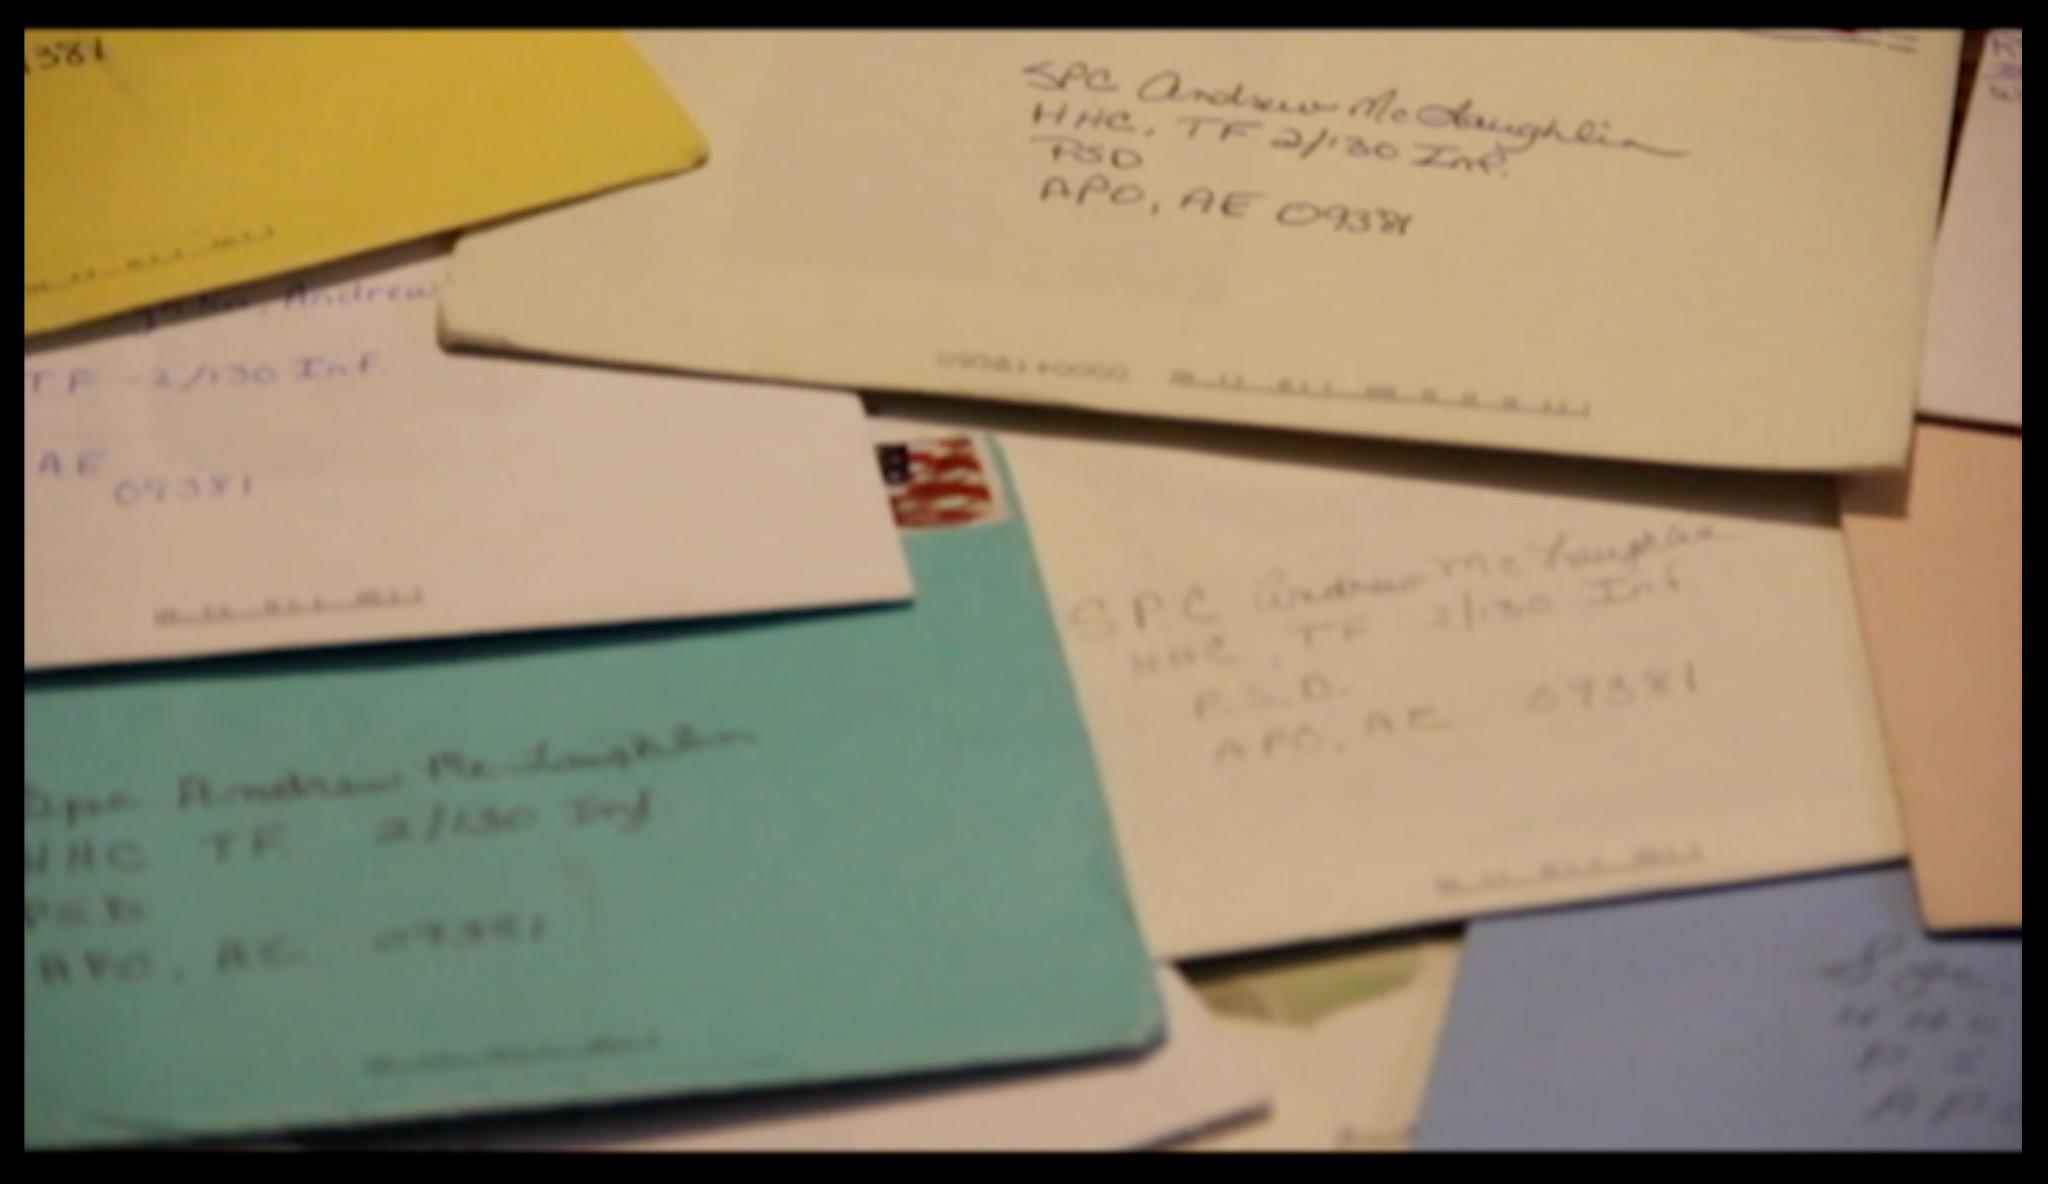 381
SPC Andrew McLaughlin
HHC, TF 2/130 Inf.
PSD
APO, AE 09381
09381+0000
Andrew
TF 2/130 Inf
AE
09381
SPC Andrew McLaughlin
HHC, TF 2/130 Inf.
P.S.D.
APO, AE 09381
Spc Andrew McLaughlin
HHC TF 2/130 Inf.
PSD
APO, AE 09381
Spc.
HHC
PS
APO